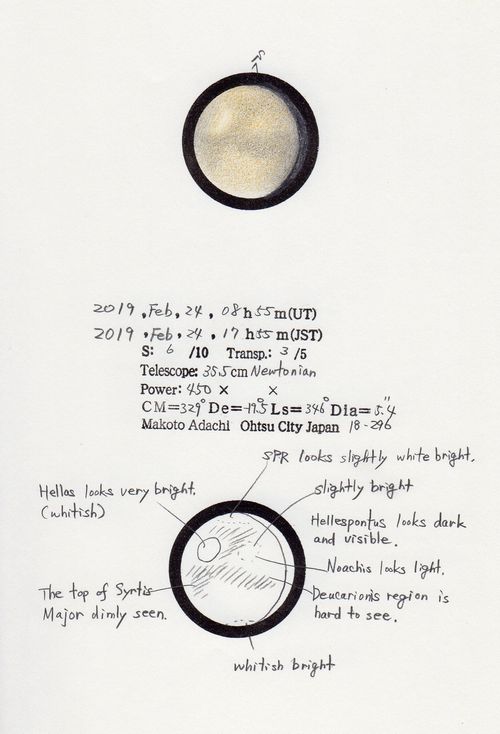 2019, Feb, 24, 08h55m(UT)
2019, Feb, 24, 17h55m(JST)
S: 6 /10 Transp.: 3 /5
Telescope: 35.5cm Newtonian
Power: 450 × ×
CM=329° De=-19.5° Ls=346° Dia=5.4"
Makoto Adachi Ohtsu City Japan 18-296
SPR looks slightly white bright.
Hellas looks very bright.
(whitish)
slightly bright
Hellespontus looks dark
and visible.
Noachis looks light.
The top of Syrtis
Major dimly seen.
Deucarionis region is
hard to see.
whitish bright